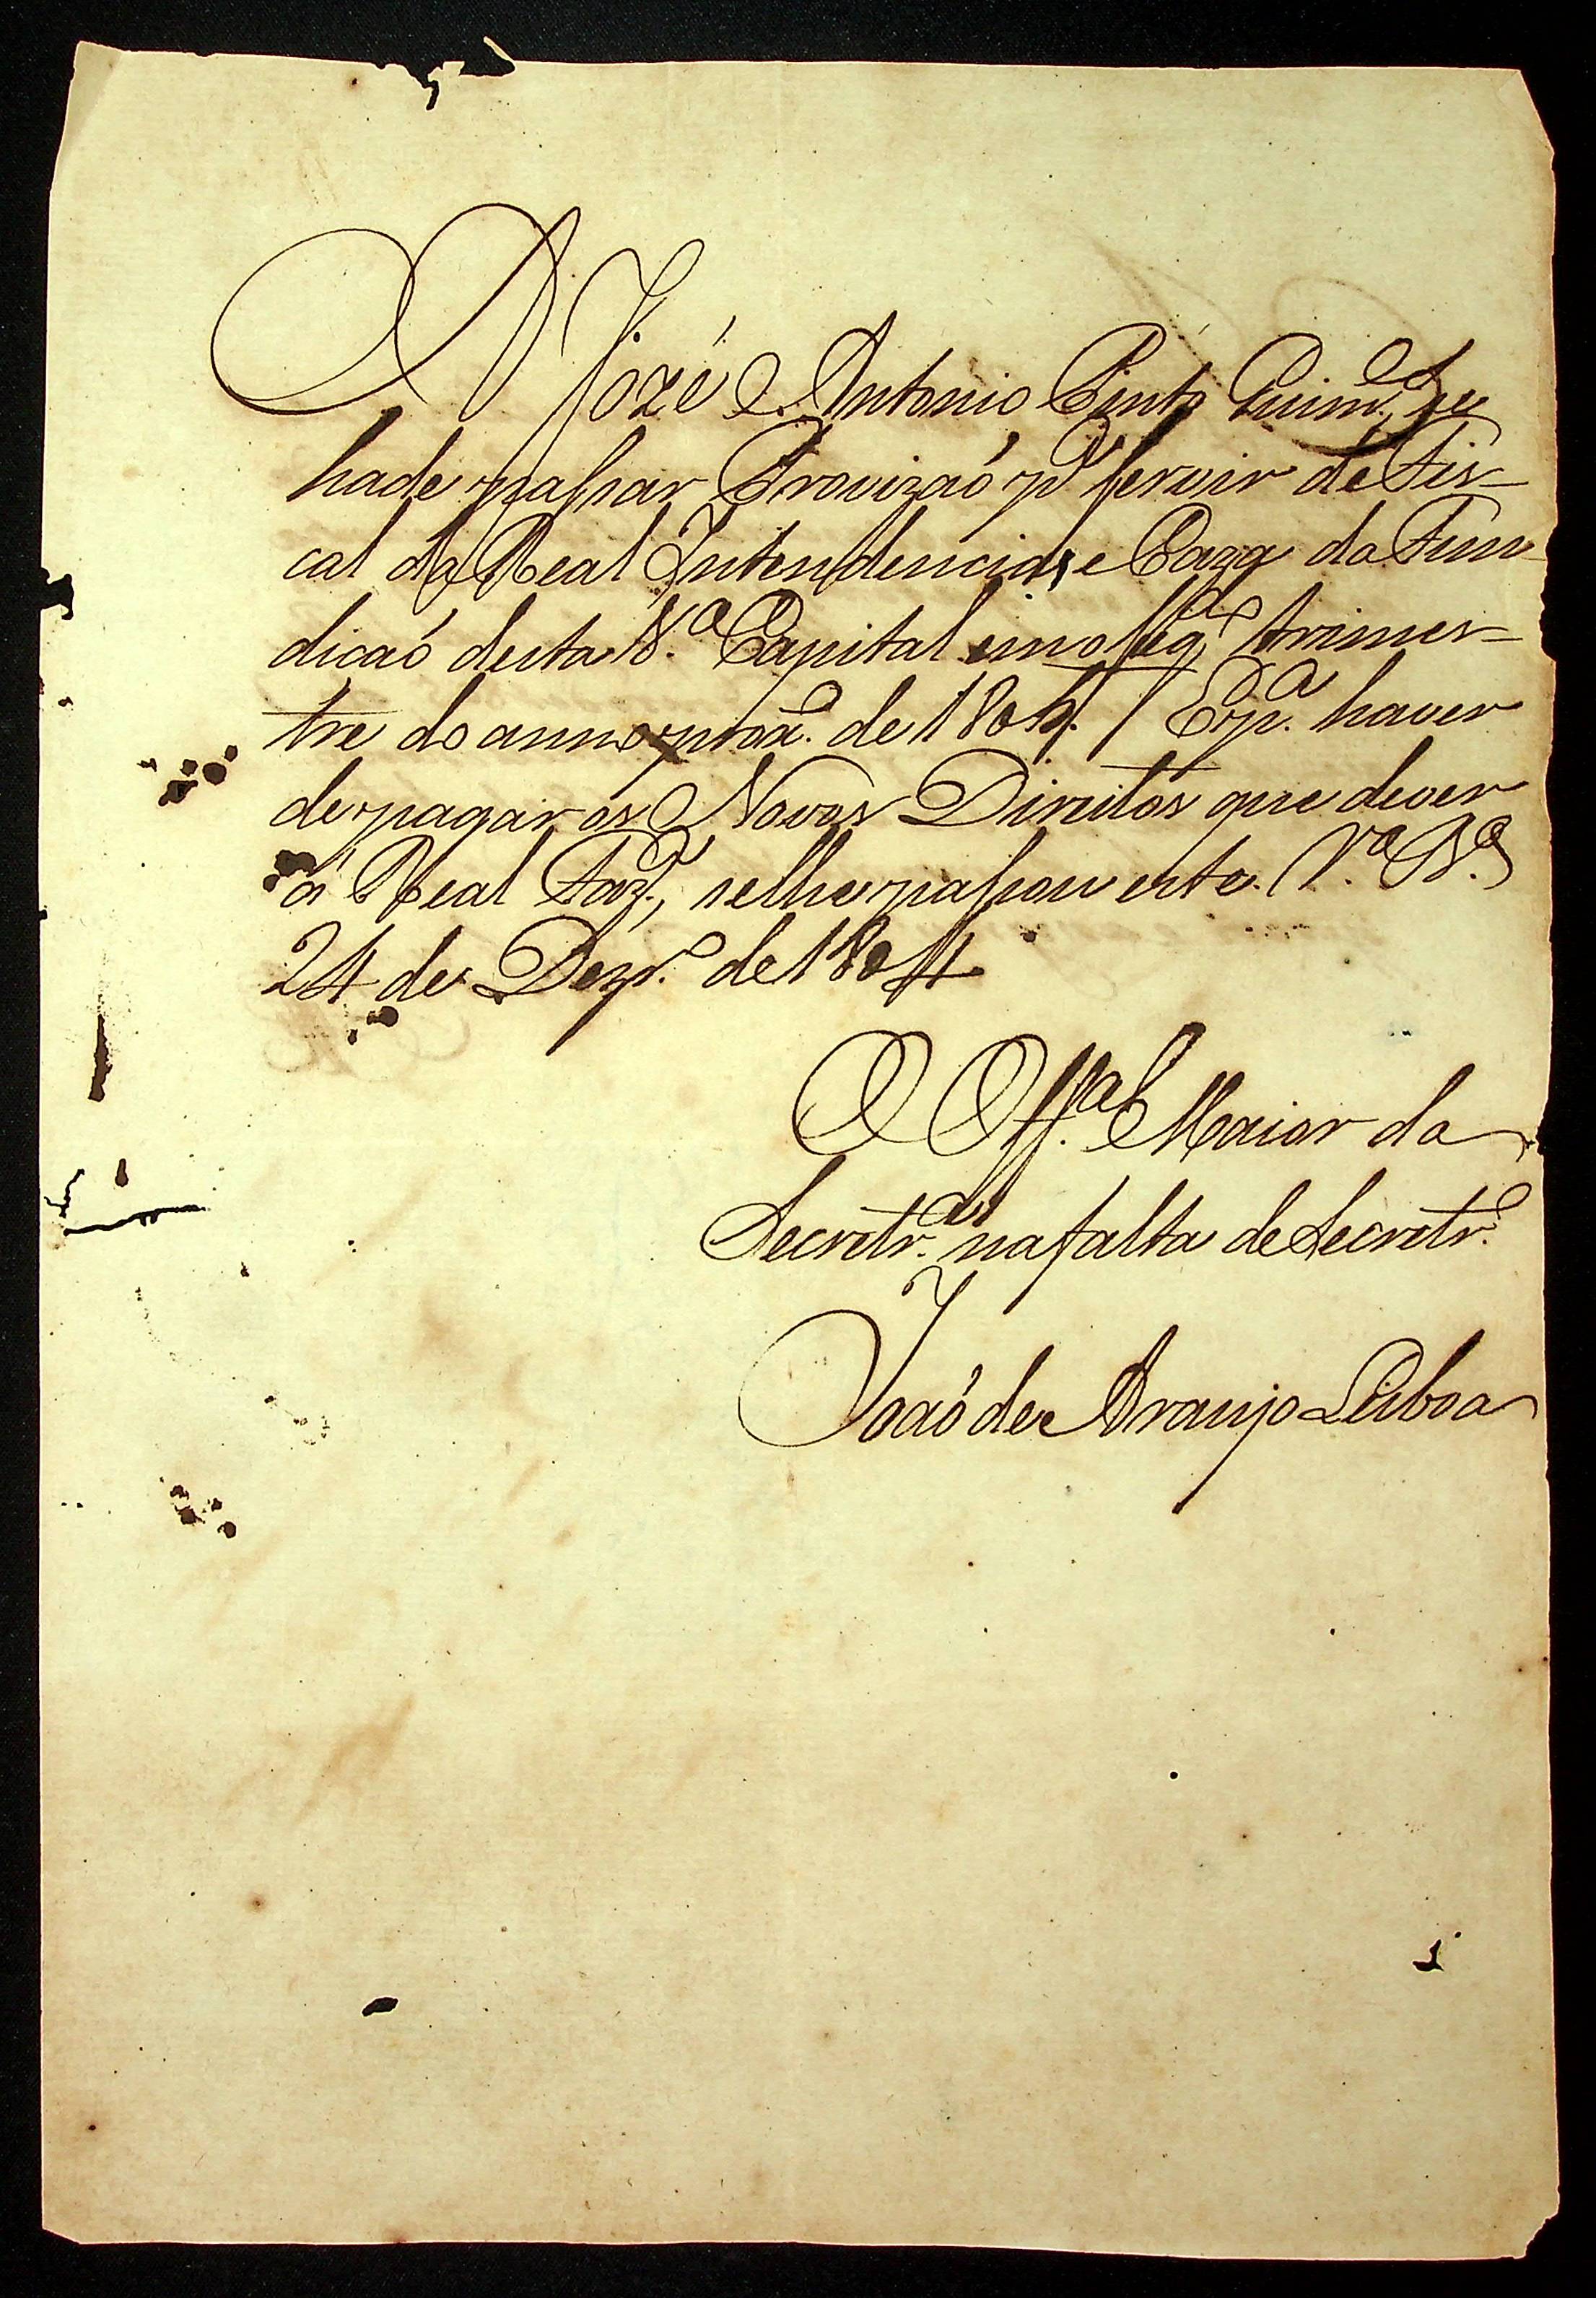 A Jozé Antonio Pinto Guim.es se
hade passar Provizaõ p.a servir de Fis-
cal da Real Intendencia, e Caza da Fun-
diçaõ desta V.a Capital em o seg.do trimes-
tre do anno prox.o de 180 / E p.a haver
de pagar os Novos Direitos que dever
á Real Faz.da, se lhe passou esta. V.a R.a
24 de Dezr.o de 1804
O Off.al Maior da
Secretr.a na falta de Secretr.o
Joaõ de Araujo Lisboa